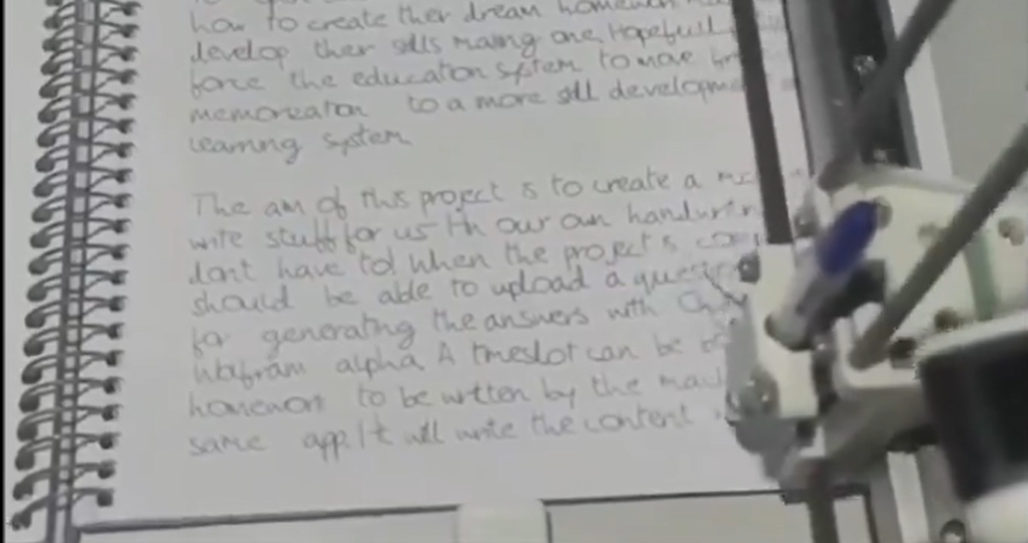 how to create ther dream homework
develop ther sklls making one. Hopefull
force the education system to move
memoreation to a more skll developme
learning system
The am of this project is to create a
write stuff for us wth our own handwrin
dont have to! When the project s com
should be able to upload a quest
for generating the answers with
Wolfram alpha. A tmeslot can be
homework to be wrtten by the mach
same app It wll write the content